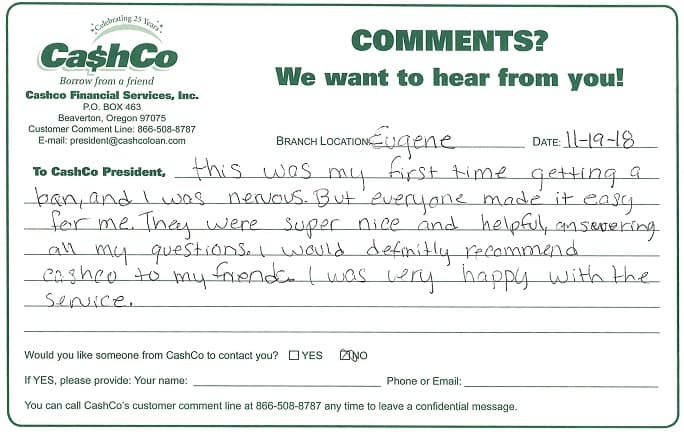 Celebrating 25 Years
Ca$hCo
Borrow from a friend
Cashco Financial Services, Inc.
P.O. BOX 463
Beaverton, Oregon 97075
Customer Comment Line: 866-508-8787
E-mail: president@cashcoloan.com
COMMENTS?
We want to hear from you!
BRANCH LOCATION: Eugene DATE: 11-19-18
To CashCo President, this was my first time getting a
loan, and I was nervous. But everyone made it easy
for me. They were super nice and helpful, answering
all my questions. I would definitly recommend
cashco to my friends. I was very happy with the
service.
Would you like someone from CashCo to contact you? YES NO
If YES, please provide: Your name: Phone or Email:
You can call CashCo's customer comment line at 866-508-8787 any time to leave a confidential message.